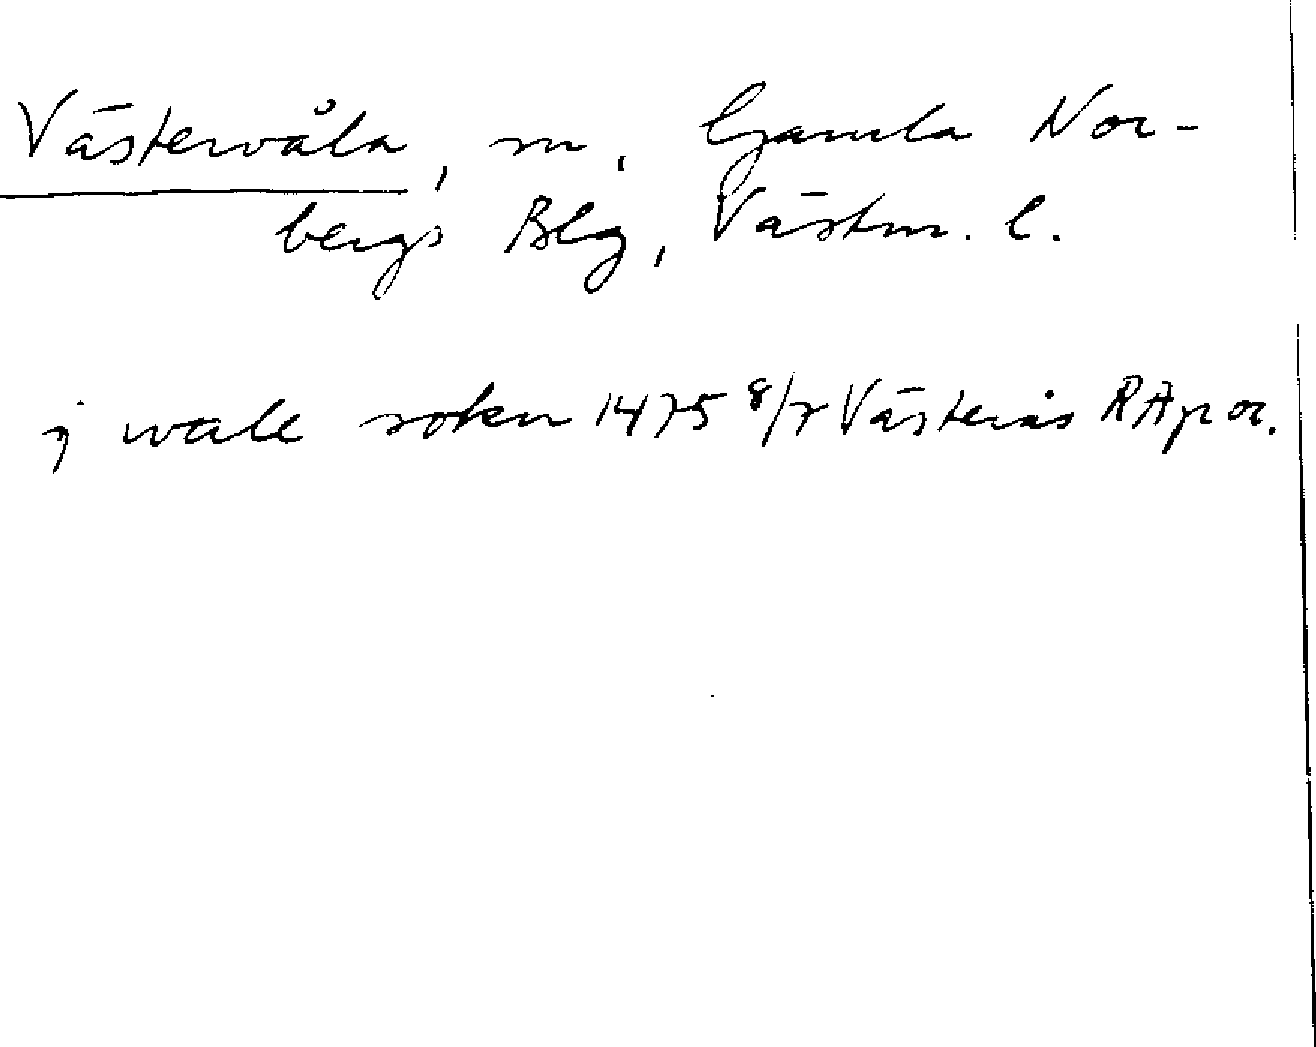 Västervåla, sn, Gamla Nor-
bergs Blg, Västm. l.
j wale sokn 1475 8/7 Västerås RAp or.